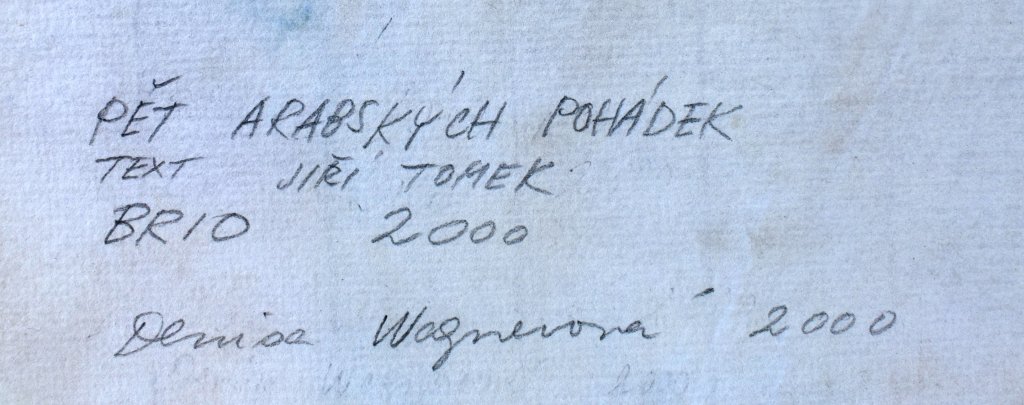 PĚT ARABSKÝCH POHÁDEK
TEXT JIŘÍ TOMEK
BRIO 2000
Denisa Wagnerová 2000